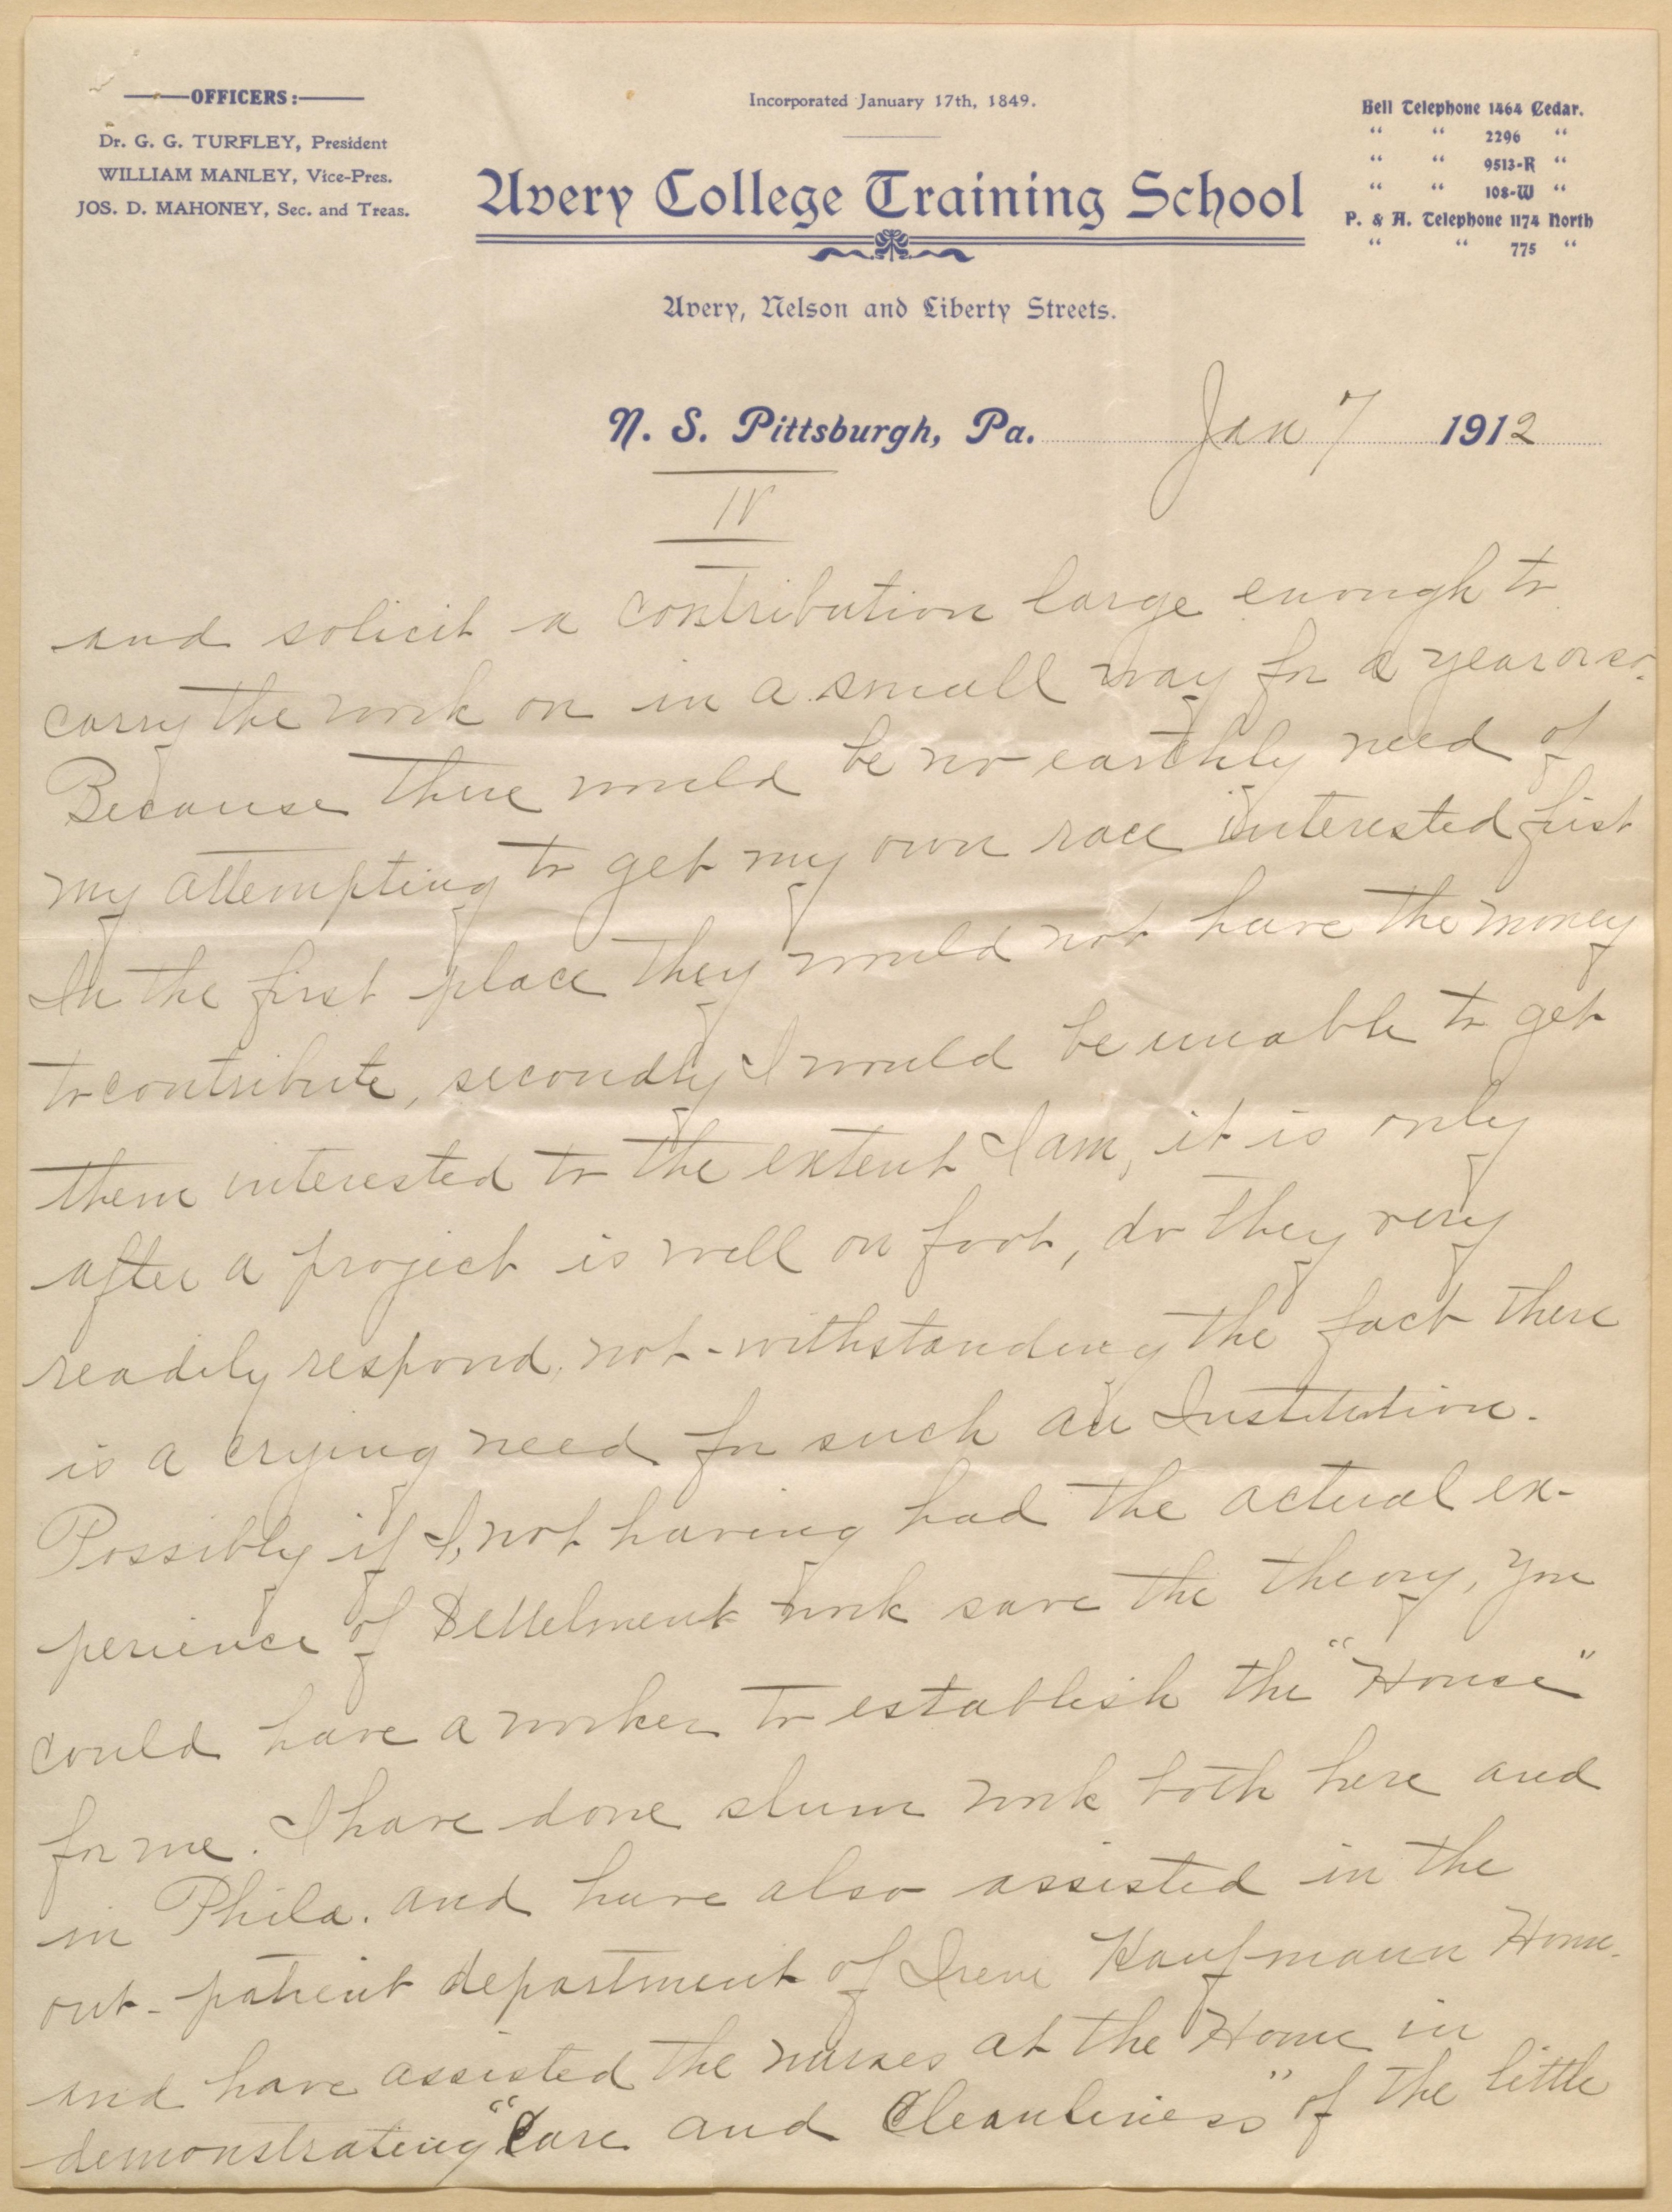 OFFICERS:
Dr. G. G. TURFLEY, President
WILLIAM MANLEY, Vice-Pres.
JOS. D. MAHONEY, Sec. and Treas.
Incorporated January 17th, 1849.
Avery College Training School
Avery, Nelson and Liberty Streets.
Bell Telephone 1464 Cedar.
" " 2296 "
" " 9513-R "
" " 108-W "
P. & A. Telephone 1174 North
" " 775 "
N. S. Pittsburgh, Pa. Jan 7 1912
IV
and solicit a contribution large enough to
carry the work on in a small way for a year or so.
Because there would be no earthly need of
my attempting to get my own race interested first
In the first place they would not have the money
to contribute, secondly I would be unable to get
them interested to the extent I am, it is only
after a project is well on foot, do they very
readily respond, not-withstanding the fact there
is a crying need for such an Institution.
Possibly if I, not having had the actual ex-
perience of Settelment work save the theory, you
could have a worker to establish the "House"
for me. I have done slum work both here and
in Phila. and have also assisted in the
out-patient department of Irene Kaufmann Home.
and have assisted the nurses at the Home in
demonstrating "Care and Cleanliness" of the little